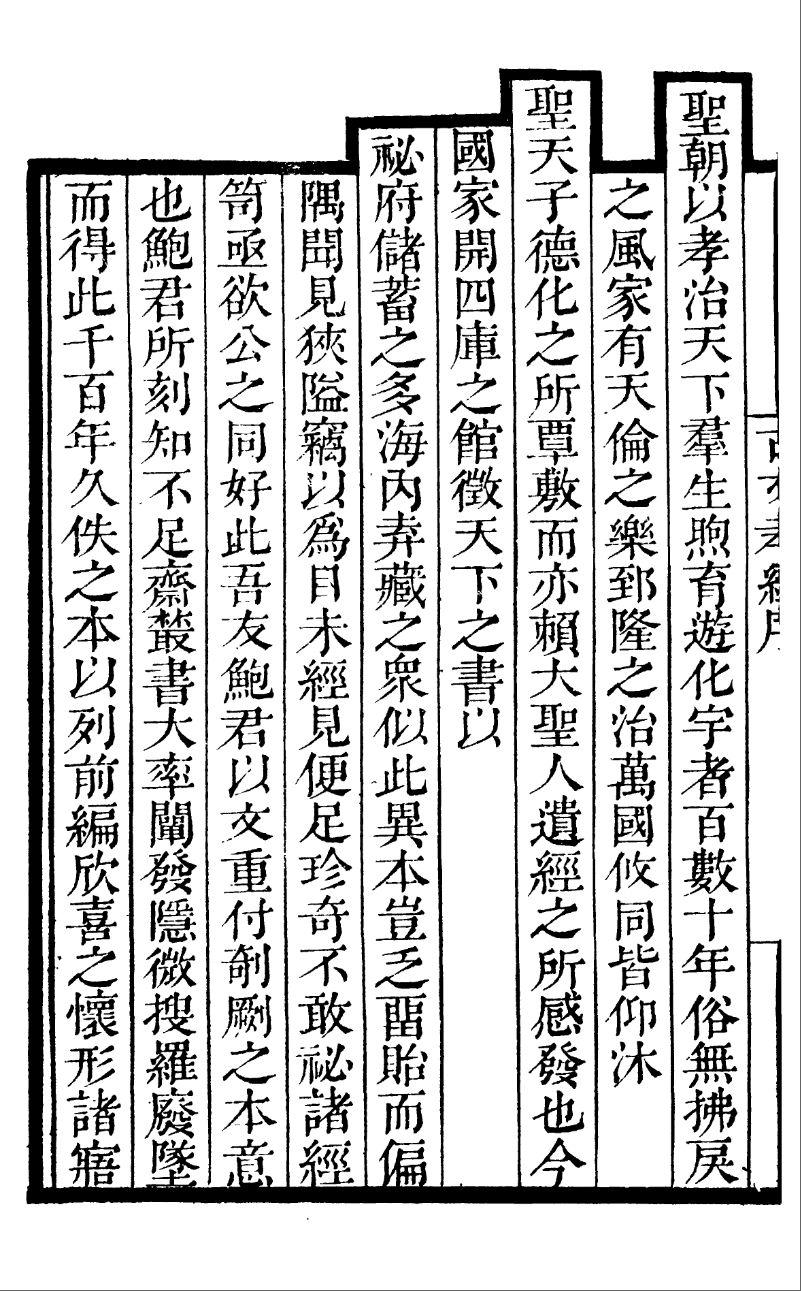 聖朝以孝治天下羣生煦育遊化宇者百數十年俗無拂戾
之風家有天倫之樂郅隆之治萬國攸同皆仰沐
聖天子德化之所覃敷而亦頼大聖人遺經之所感發也今
國家開四庫之館徵天下之書以
祕府儲蓄之多海內弆藏之衆似此異本豈乏畱貽而偏
隅聞見狹隘竊以爲目未經見便足珍奇不敢祕諸經
笥亟欲公之同好此吾友鮑君以文重付剞劂之本意
也鮑君所刻知不足齋叢書大率闡發隱微搜羅廢墜
而得此千百年久佚之本以列前編欣喜之懷形諸寤
古文孝經序